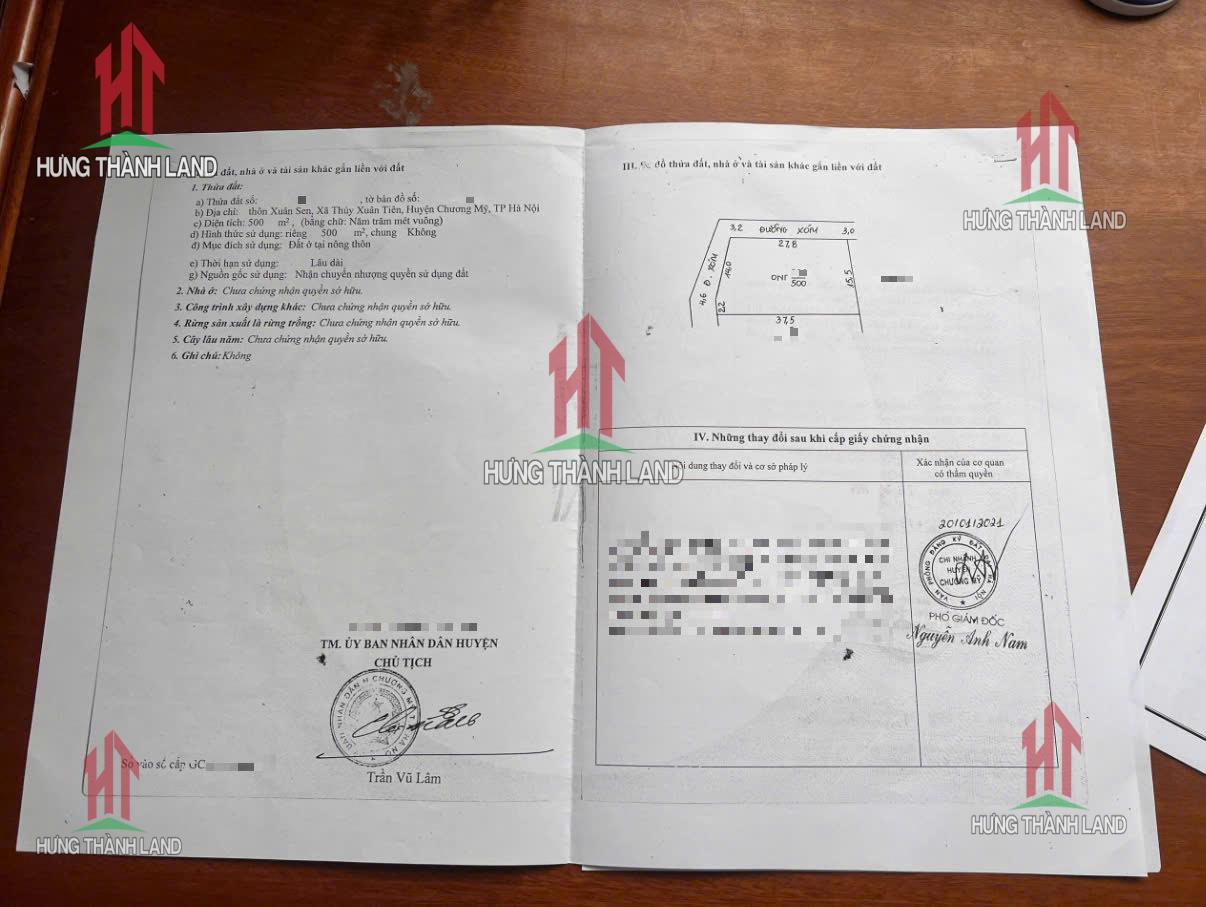 HƯNG THÀNH LAND
đất, nhà ở và tài sản khác gắn liền với đất
1. Thửa đất:
a) Thửa đất số: , tờ bản đồ số:
b) Địa chỉ: thôn Xuân Sen, Xã Thủy Xuân Tiên, Huyện Chương Mỹ, TP Hà Nội
c) Diện tích: 500 m², (bằng chữ: Năm trăm mét vuông)
d) Hình thức sử dụng: riêng 500 m², chung Không
đ) Mục đích sử dụng: Đất ở tại nông thôn
e) Thời hạn sử dụng: Lâu dài
g) Nguồn gốc sử dụng: Nhận chuyển nhượng quyền sử dụng đất
2. Nhà ở: Chưa chứng nhận quyền sở hữu.
3. Công trình xây dựng khác: Chưa chứng nhận quyền sở hữu.
4. Rừng sản xuất là rừng trồng: Chưa chứng nhận quyền sở hữu.
5. Cây lâu năm: Chưa chứng nhận quyền sở hữu.
6. Ghi chú: Không
TM. ỦY BAN NHÂN DÂN HUYỆN
CHỦ TỊCH
Trần Vũ Lâm
Số vào sổ cấp GC
HƯNG THÀNH LAND
HƯNG THÀNH LAND
III. đồ thửa đất, nhà ở và tài sản khác gắn liền với đất
HƯNG THÀNH LAND
3,2 ĐƯỜNG XÓM 3,0
27,8
Đ. XÓM
14,0
ONT
500
15,5
22
37,5
IV. Những thay đổi sau khi cấp giấy chứng nhận
dung thay đổi và cơ sở pháp lý
Xác nhận của cơ quan
có thẩm quyền
VĂN PHÒNG ĐĂNG KÝ ĐẤT ĐAI HÀ NỘI
CHI NHÁNH
HUYỆN
CHƯƠNG MỸ
PHÓ GIÁM ĐỐC
Nguyễn Anh Nam
HƯNG THÀNH LAND